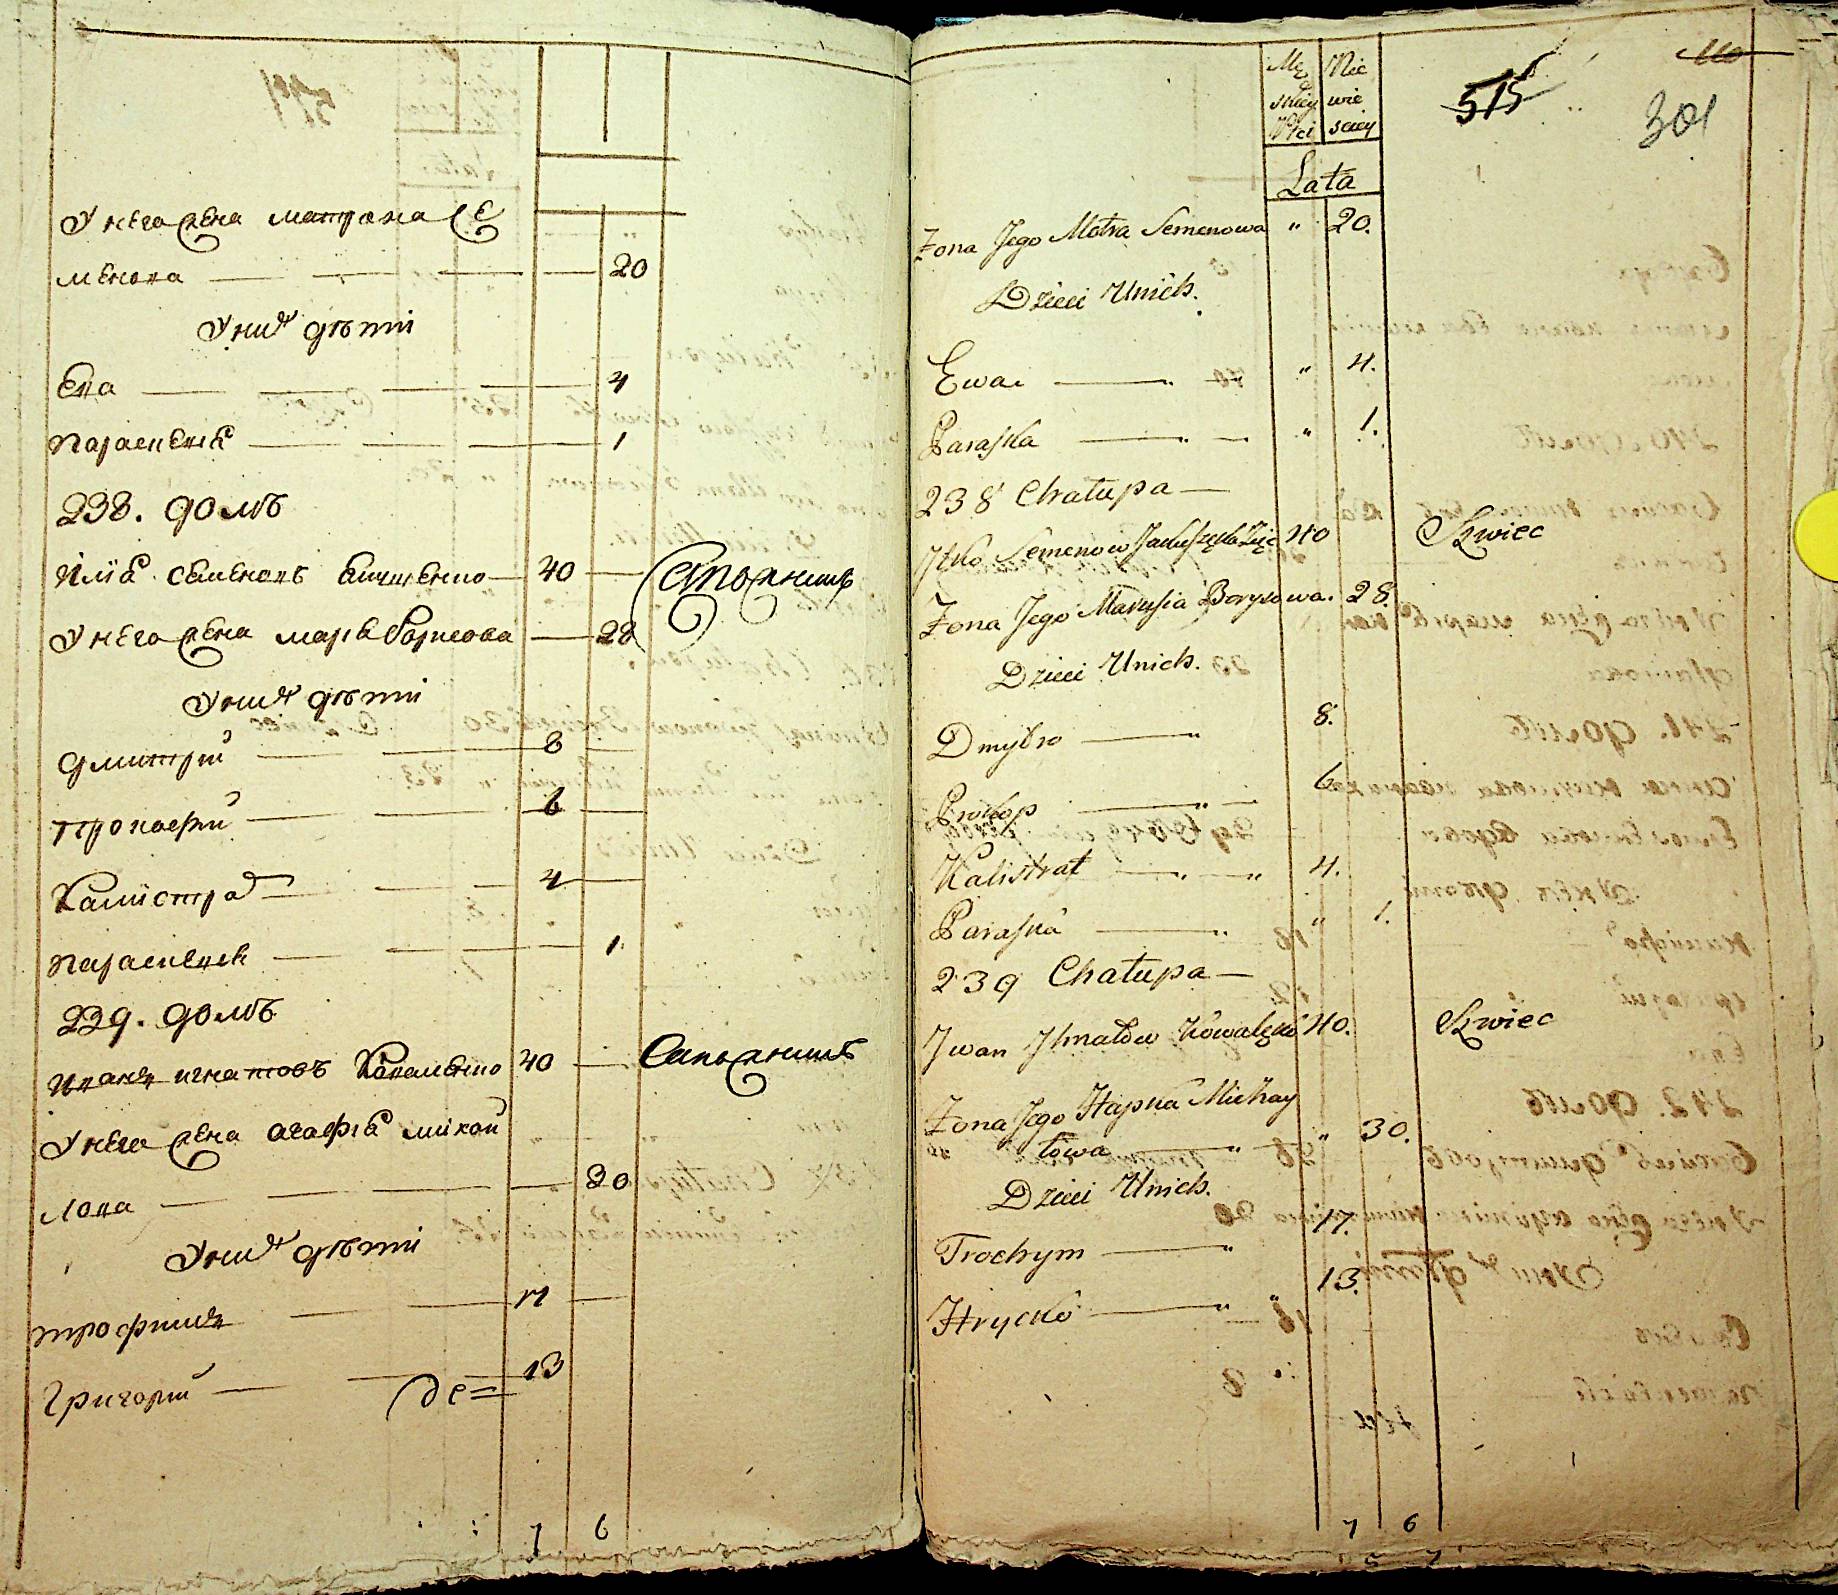 У него жена матрона Се
менова 20
У них дѣти
Ева 4
Параскевія 1
238. домъ
Илїа семеновъ 40 Сапожникъ
У него жена марїя Борисова 28
У них дѣти
Дмитрій 8
Прокофій 6
Калїстрат 4
Параскевія 1
239. домъ
Иванъ игнатовъ Коваленко 40 Сапожникъ
У него жена агафїа михай
лова 30
У них дѣти
трофимъ 17
Григорій 13
де=
7 6
Męzskiey Płci
Niewiesciey
Lata
515
110
301
Zona Jego Motra Semenowa " 20.
Dzieci Unich.
Ewa " 4.
Paraska " 1.
238 Chałupa
Jłko Semenow 40 Szwiec
Zona Jego Marusia Borysowa. 28.
Dzieci Unich.
Dmytro 8.
Prokop 6.
Kalistrat 4.
Paraska " 1.
239 Chałupa
Jwan Jhnatow Kowalęko 40. Szwiec
Zona Jego Hapka Michay
łowa " 30.
Dzieci Unich.
Trochym 17.
Hrycko 13.
7 6